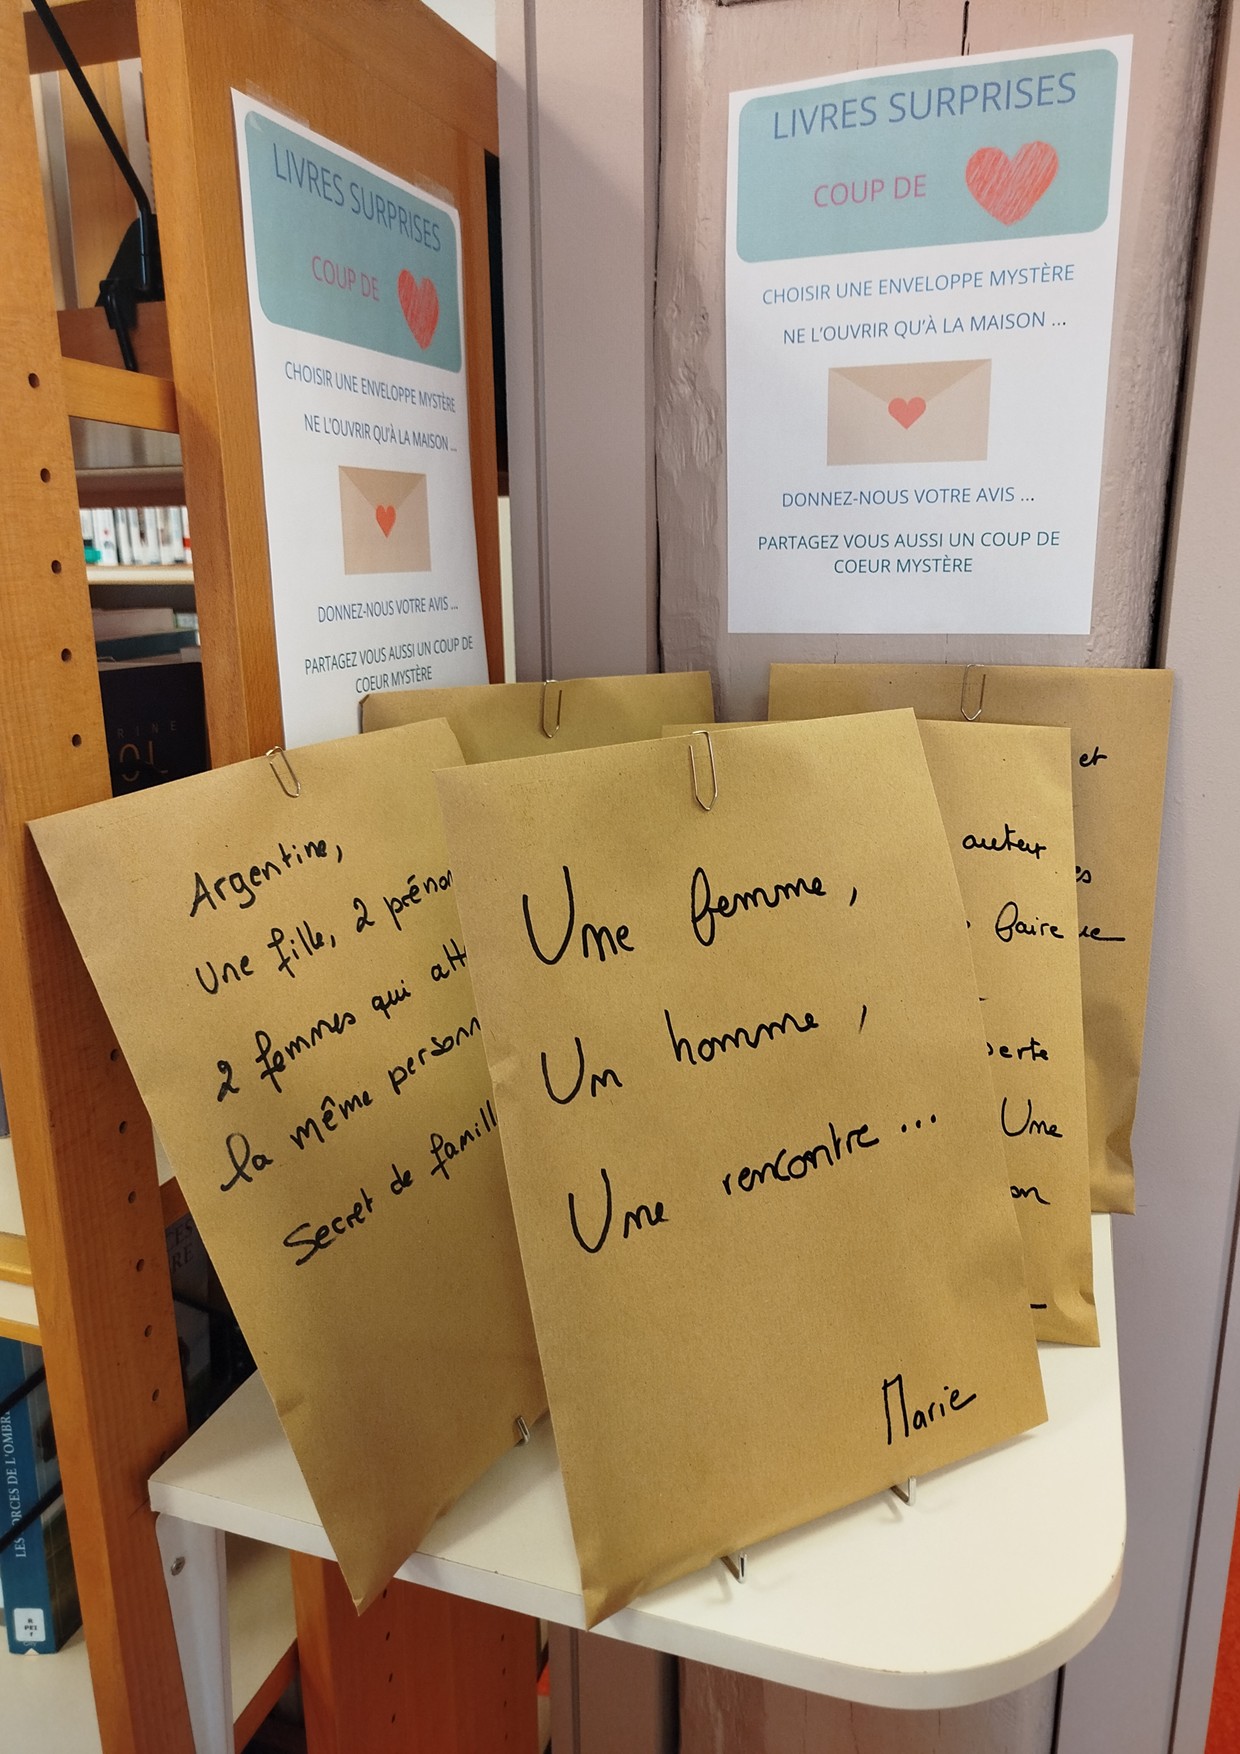 LIVRES SURPRISES
COUP DE
CHOISIR UNE ENVELOPPE MYSTÈRE
NE L'OUVRIR QU'À LA MAISON ...
DONNEZ-NOUS VOTRE AVIS ...
PARTAGEZ VOUS AUSSI UN COUP DE
COEUR MYSTÈRE
LIVRES SURPRISES
COUP DE
CHOISIR UNE ENVELOPPE MYSTÈRE
NE L'OUVRIR QU'À LA MAISON ...
DONNEZ-NOUS VOTRE AVIS ...
PARTAGEZ VOUS AUSSI UN COUP DE
COEUR MYSTÈRE
Argentine,
Une fille, 2
2 femmes qui
la même
Secret de
Une femme,
Un homme,
Une rencontre...
Marie
auteur
faire
Une
et